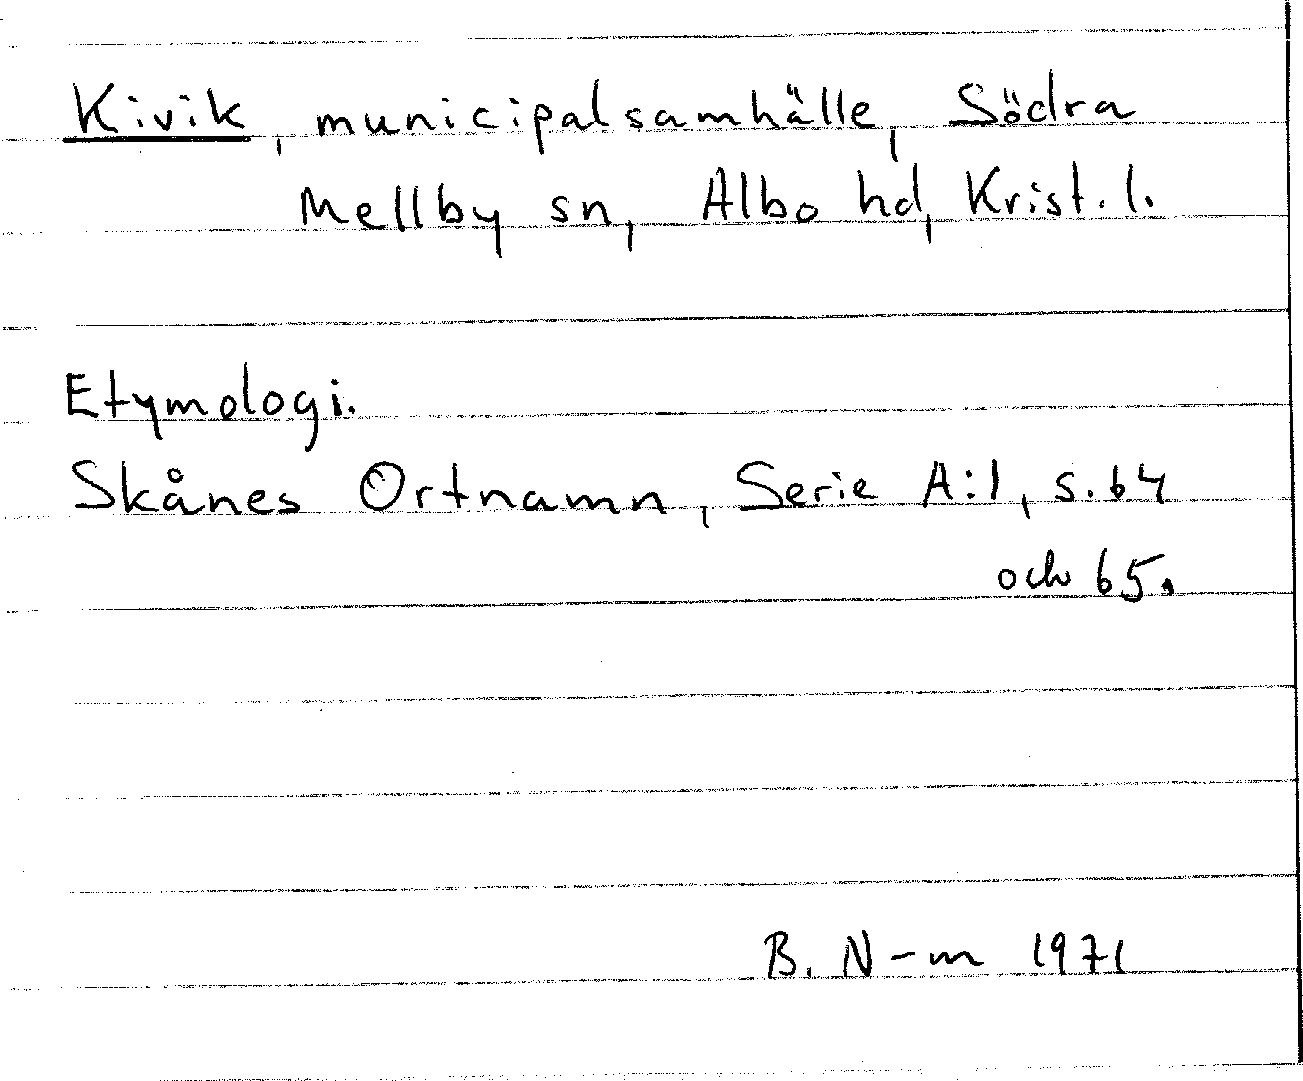 Kivik, municipalsamhälle, Södra
Mellby sn, Albo hd, Krist. l.
Etymologi.
Skånes Ortnamn, Serie A:1, s. 64
och 65.
B. N-m 1971